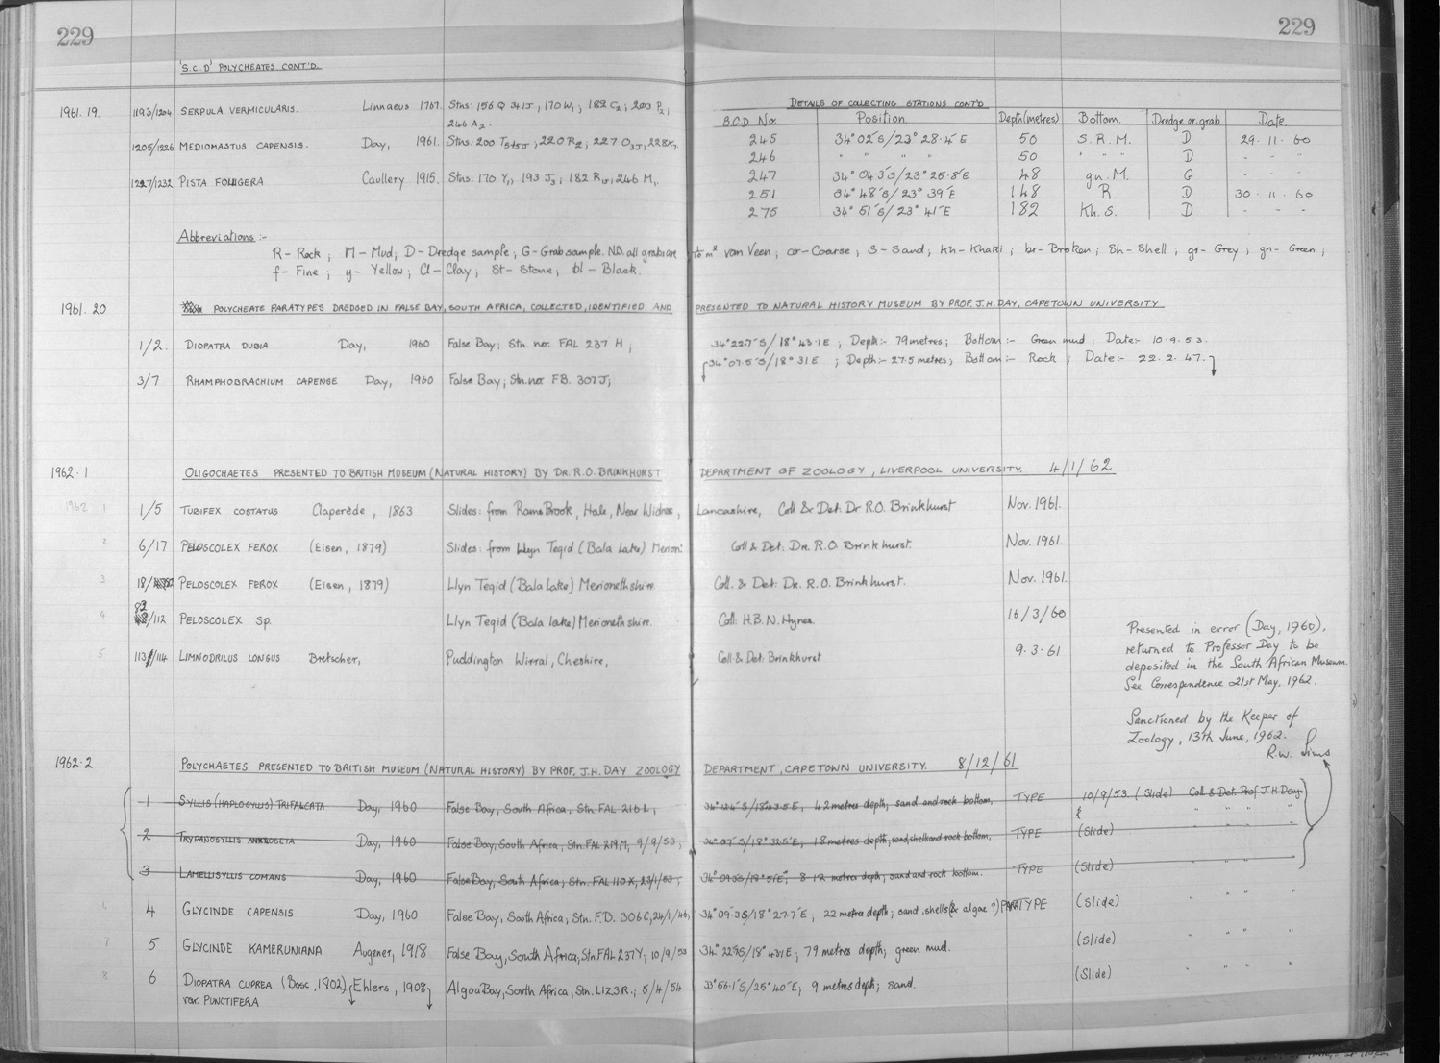 229
229
'S.C.D' POLYCHEATES CONT'D.
1961.19. 1193/1204 SERPULA VERMICULARIS. Linnaeus 1767. Stns: 156 Q 341J; 170 W1; 182 C2; 203 P2;
246 A2.
1205/1226 MEDIOMASTUS CAPENSIS. Day, 1961. Stns. 200 T; 220 R2; 227 O; 228K.
1227/1232 PISTA FOLIIGERA Caullery 1915. Stns: 170 Y; 193 J3; 182 R; 246 M.
DETAILS OF COLLECTING STATIONS CONT'D
B.C.D No. Position Depth (metres) Bottom. Dredge or grab Date.
245 34° 02'S/23° 28.4'E 50 S.R.M. D 29.11.60
246 " " " " 50 " " " D - - -
247 34° 04.3'S/23° 25.8'E 48 gn.M. G - - -
251 34° 48'S/23° 39'E 148 R D 30.11.60
275 34° 51'S/23° 41'E 182 Kh.S. D - - -
Abbreviations :-
R - Rock; M - Mud; D - Dredge sample; G - Grab sample. N.B. all grabs are 1/10 m² van Veen; co - Coarse; S - Sand; Kh - Khaki; br - Broken; Sh - Shell; gy - Grey; gn - Green;
f - Fine; y - Yellow; Cl - Clay; St - Stone; bl - Black.
1961.20 POLYCHEATE PARATYPES DREDGED IN FALSE BAY, SOUTH AFRICA, COLLECTED, IDENTIFIED AND PRESENTED TO NATURAL HISTORY MUSEUM BY PROF. J.H. DAY, CAPETOWN UNIVERSITY
1/2. DIOPATRA DUBIA Day, 1960 False Bay; Stn. no: FAL 237 H; 34° 22.7'S/18° 43.1E; Depth:- 79 metres; Bottom:- Green mud. Date:- 10.9.53.
34° 07.5'S/18° 31E; Depth:- 27.5 metres; Bottom:- Rock; Date:- 22.2.47.
3/7 RHAMPHOBRACHIUM CAPENSE Day, 1960 False Bay; Stn. no: FB. 307J;
1962.1 OLIGOCHAETES PRESENTED TO BRITISH MUSEUM (NATURAL HISTORY) BY DR. R.O. BRINKHURST DEPARTMENT OF ZOOLOGY, LIVERPOOL UNIVERSITY. 4/1/62
1962 1 1/5 TUBIFEX COSTATUS Claperède, 1863 Slides: from Rams Brook, Hale, Near Widnes, Lancashire, Coll & Det: Dr R.O. Brinkhurst Nov. 1961.
2 6/17 PELOSCOLEX FEROX (Eisen, 1879) Slides: from Llyn Tegid (Bala Lake) Merion: Coll & Det: Dr. R.O. Brinkhurst. Nov. 1961.
3 18/ PELOSCOLEX FEROX (Eisen, 1879) Llyn Tegid (Bala Lake) Merionethshire. Coll. & Det: Dr. R.O. Brinkhurst. Nov. 1961.
4 83/112 PELOSCOLEX Sp. Llyn Tegid (Bala Lake) Merionethshire. Coll: H.B.N. Hynes. 16/3/60
5 113/114 LIMNODRILUS LONGUS Bretscher, Puddington Wirral, Cheshire, Coll & Det: Brinkhurst 9.3.61
Presented in error (Day, 1960),
returned to Professor Day to be
deposited in the South African Museum.
See Correspondence 21st May, 1962.
Sanctioned by the Keeper of
Zoology, 13th June, 1962.
R.W. Sims
1962.2 POLYCHAETES PRESENTED TO BRITISH MUSEUM (NATURAL HISTORY) BY PROF. J.H. DAY ZOOLOGY DEPARTMENT, CAPETOWN UNIVERSITY. 8/12/61
1 SYLLIS (HAPLOSYLLIS) TRIFALCATA Day, 1960 False Bay, South Africa, Stn. FAL 216 L; 42 metres depth; sand and rock bottom. TYPE 10/9/53. (Slide) Coll. & Det. Prof J.H. Day.
2 TRYPANOSYLLIS Day, 1960 False Bay, South Africa, Stn. FAL 219M, 9/9/53; 34° 07'S/18° 32.5'E; 18 metres depth; sand, shell and rock bottom. TYPE (Slide) " " "
3 LAMELLISYLLIS COMANS Day, 1960 False Bay, South Africa; Stn. FAL 110 X, 8-12 metres depth; sand and rock bottom. TYPE (Slide) " " "
6 4 GLYCINDE CAPENSIS Day, 1960 False Bay, South Africa, Stn. F.D. 306 C, 34° 09.3S/18° 27.7'E, 22 metres depth; sand, shells (& algae?) PARATYPE (Slide) " " "
7 5 GLYCINDE KAMERUNIANA Augener, 1918 False Bay, South Africa, Stn FAL 237Y; 10/9/53 34° 22'S/18° 43.1E; 79 metres depth; green mud. (Slide) " " "
8 6 DIOPATRA CUPREA (Bosc, 1802) Ehlers, 1908 Algoa Bay, South Africa, Stn. LIZ 3R.; 5/4/54 33° 56.1'S/25° 40'E; 9 metres depth; sand. (Slide) " " "
var. PUNCTIFERA